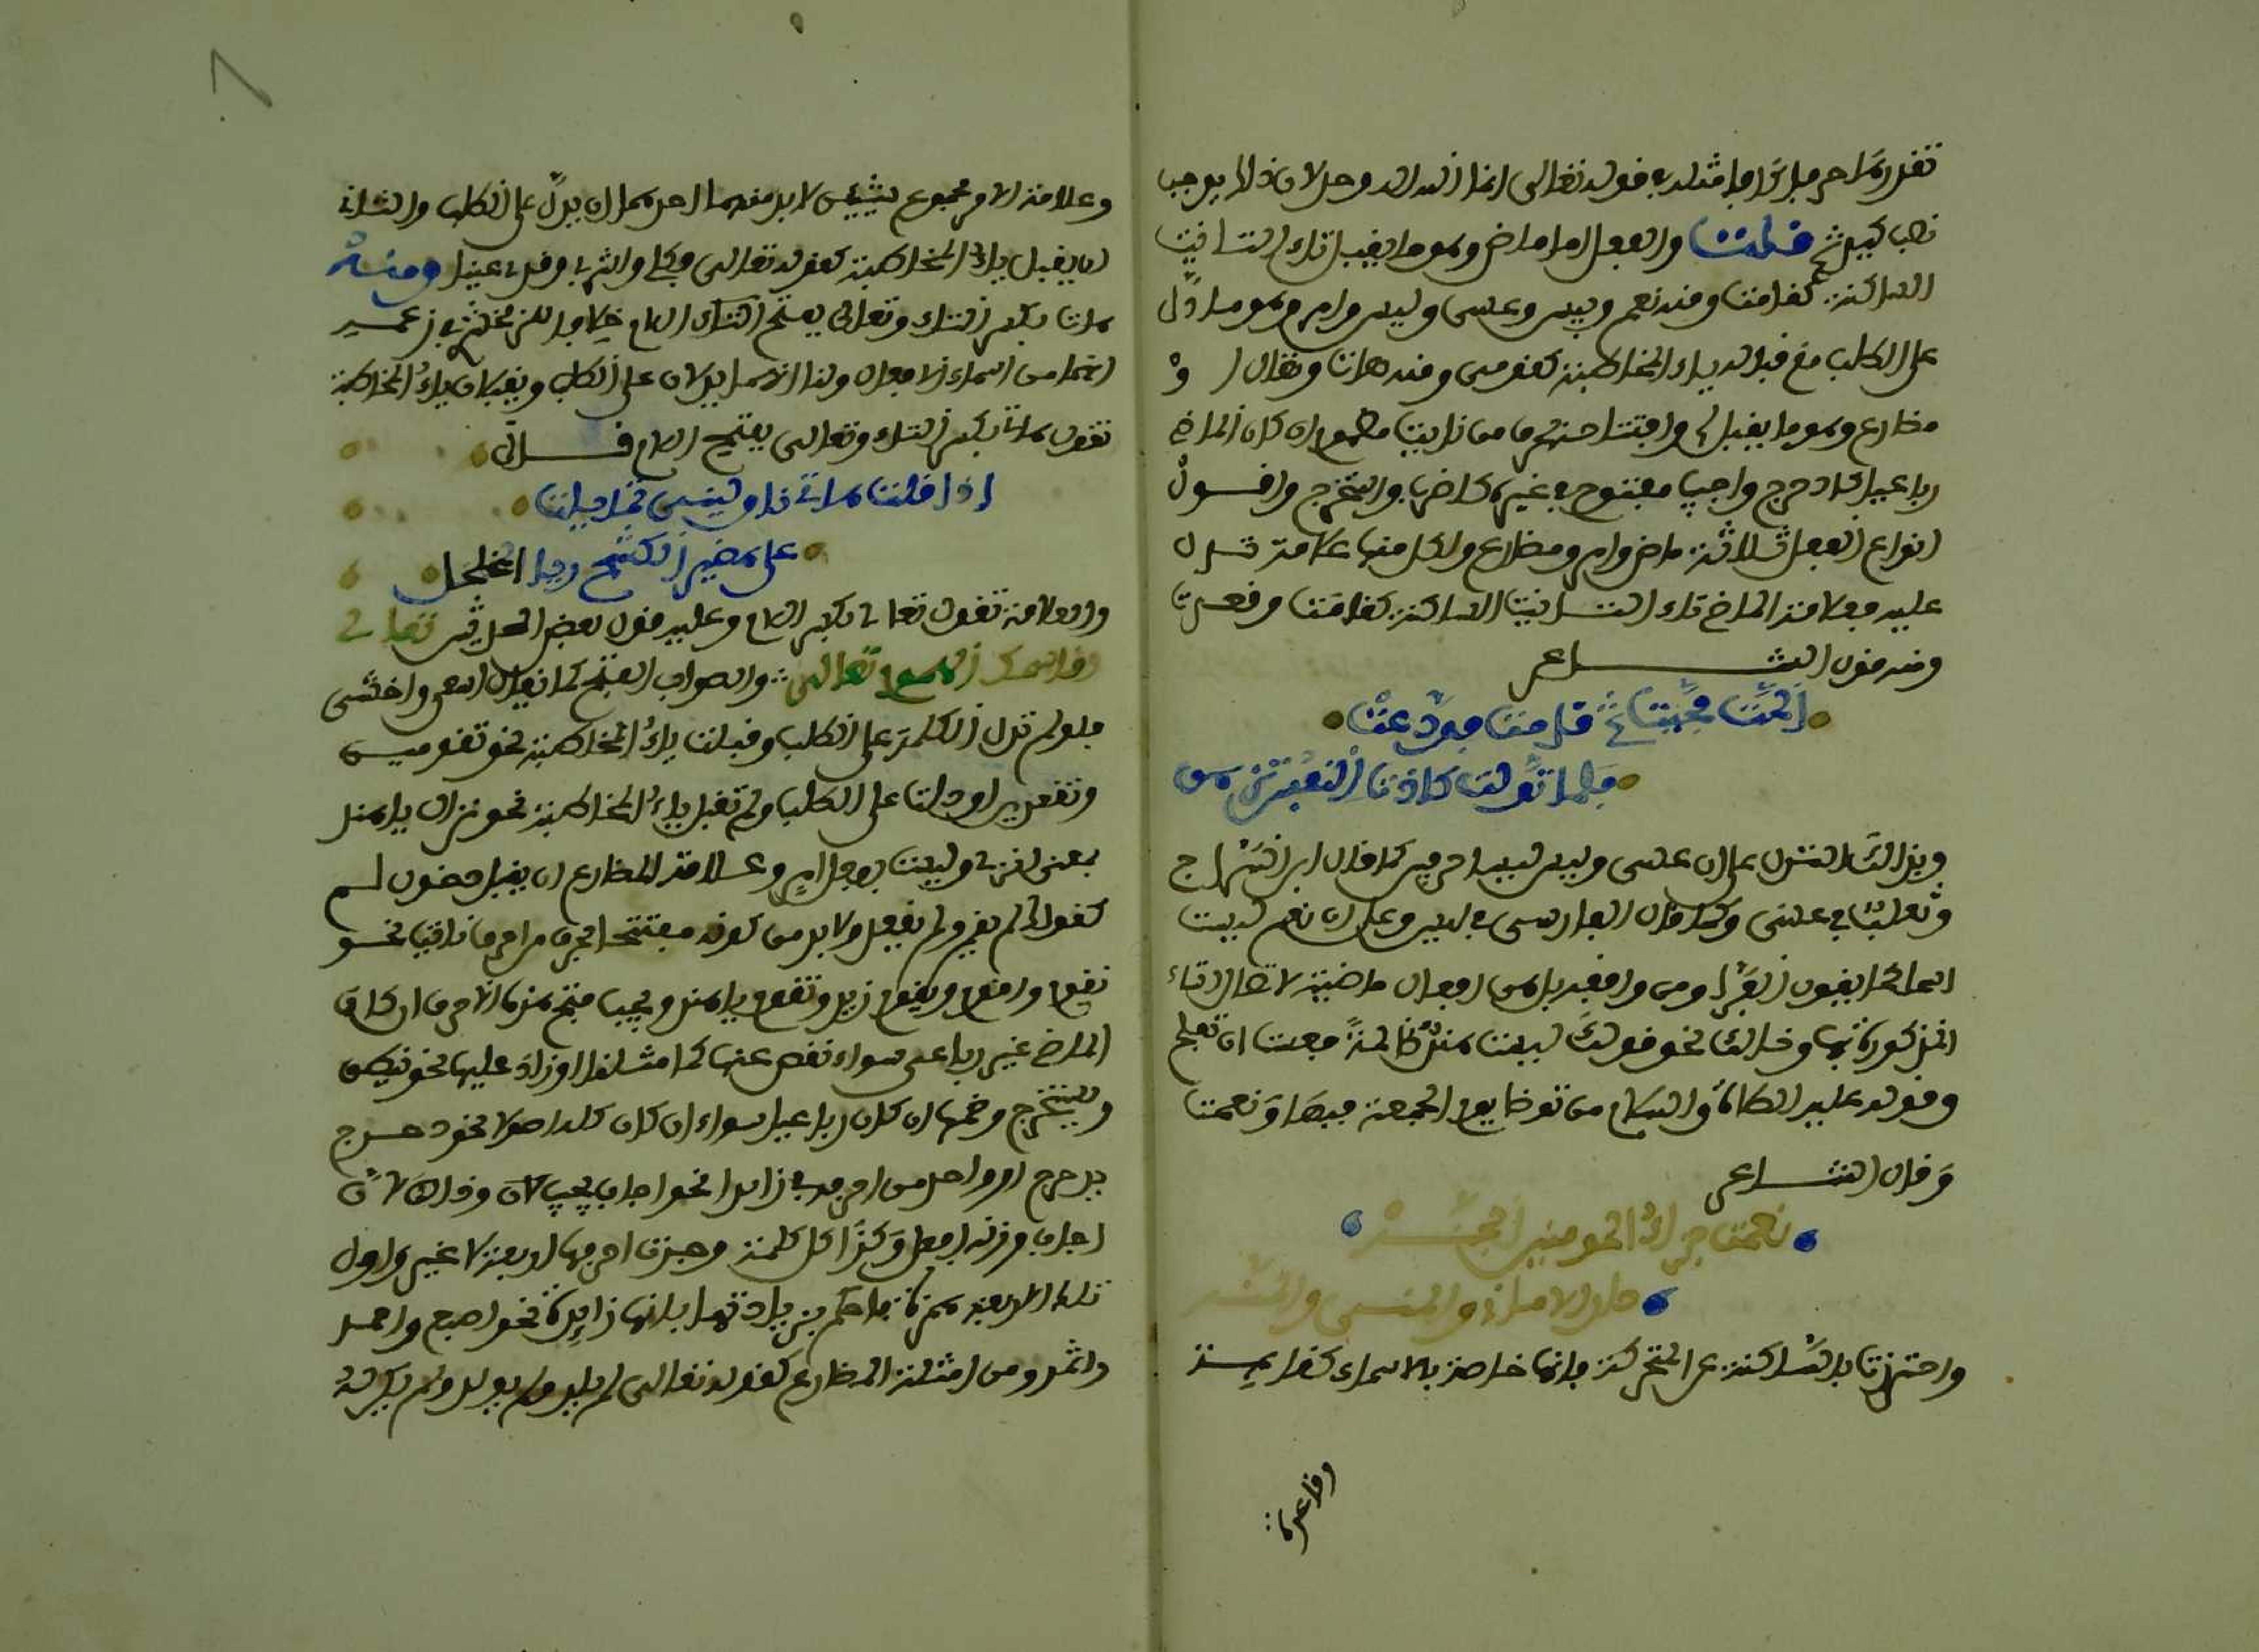 نصب كيل ثم قلت والفعل اما ماض وهو ما يقبل تاء التانيث
الساكنة كقامت ومنه نعم وبيس وعسى وليس وامر وهو ما دل
على الطلب مع قبوله ياء المخاطبة كقومي ومنه هات وتعال او
مضارع وهو ما يقبل لم وافتتاحه بحرف من نايت مضموم ان كان الماضي
رباعيا كادحرج واجيب مفتوح في غيره كاضرب واستخرج واقول
انواع الفعل ثلاثة ماض وامر ومضارع ولكل منها علامة تدل
عليه فعلامة الماضي تاء التانيث الساكنة كقامت وقعدت
ومنه قول الشاعر
المت فحيت ثم قامت فودعت
فلما تولت كادت النفس تزهق
وبذلك استدل على ان عسى وليس ليسا حرفين كما قال ابن السراج
وثعلب في عسى وكما قال الفارسي في ليس وعلى ان نعم ليست
اسما كما يقول الفراء ومن وافقه بل هي افعال ماضية لاتصال التاء
المذكورة بها وذلك نحو قولك ليست هند ظالمة فعست ان تفلح
وقوله عليه الصلاة والسلام من توضا يوم الجمعة فبها ونعمت
وقال الشاعر
نعمت جزاء المومنين الجنة
دار الاماني والمنى والمنة
واحترزت بالساكنة عن المتحركة فانها خاصة بالاسماء كقايمة
وعلامة الامر مجموع شيئين لا بد منهما احدهما ان يدل على الطلب والثاني
ان يقبل ياء المخاطبة كقوله تعالى فكلي واشربي وقري عينا ومنه
هات بكسر التاء وتعالى بفتح اللام خلافا للزمخشري في زعمه
انهما من اسماء الافعال ولنا انهما يدلان على الطلب ويقبلان ياء المخاطبة
تقول هاتي بكسر التاء وتعالى بفتح اللام قال
اذا قلت هاتي نوليني تمايلت
على هضيم الكشح ريا المخلخل
والعامة تقول تعالي بكسر اللام وعليه قول بعض المحدثين تعالي
اقاسمك الهموم تعالي والصواب الفتح كما يقال اسعى واخشى
فلو لم تدل الكلمة على الطلب وقبلت ياء المخاطبة نحو تقومين
وتقعدين او دلت على الطلب ولم تقبل ياء المخاطبة نحو نزال يا هند
بمعنى انزلي وليست بفعل امر وعلامة المضارع ان يقبل دخول لم
كقولك لم يقم ولم يقعد ولا بد من كونه مفتتحا بحرف من احرف نايت نحو
نقوم واقوم ويقوم زيد وتقوم يا هند ويجب فتح هذه الاحرف ان كان
الماضي غير رباعي سواء نقص عنها كما مثلنا او زاد عليها نحو ينطلق
ويستخرج وضمها ان كان رباعيا سواء ان كان كله اصولا نحو دحرج
يدحرج او واحد من احرفه زايدا نحو اجاب يجيب وذلك لان
اجاب وزنه افعل وكذا كل كلمة وجدت احرفها اربعة لا غير واول
تلك الاربعة همزة فاحكم بزيادتها بانها زايدة نحو اصبع واحمد
واثمد ومن امثلة المضارع كقوله تعالى لم يلد ولم يولد ولم يكن له